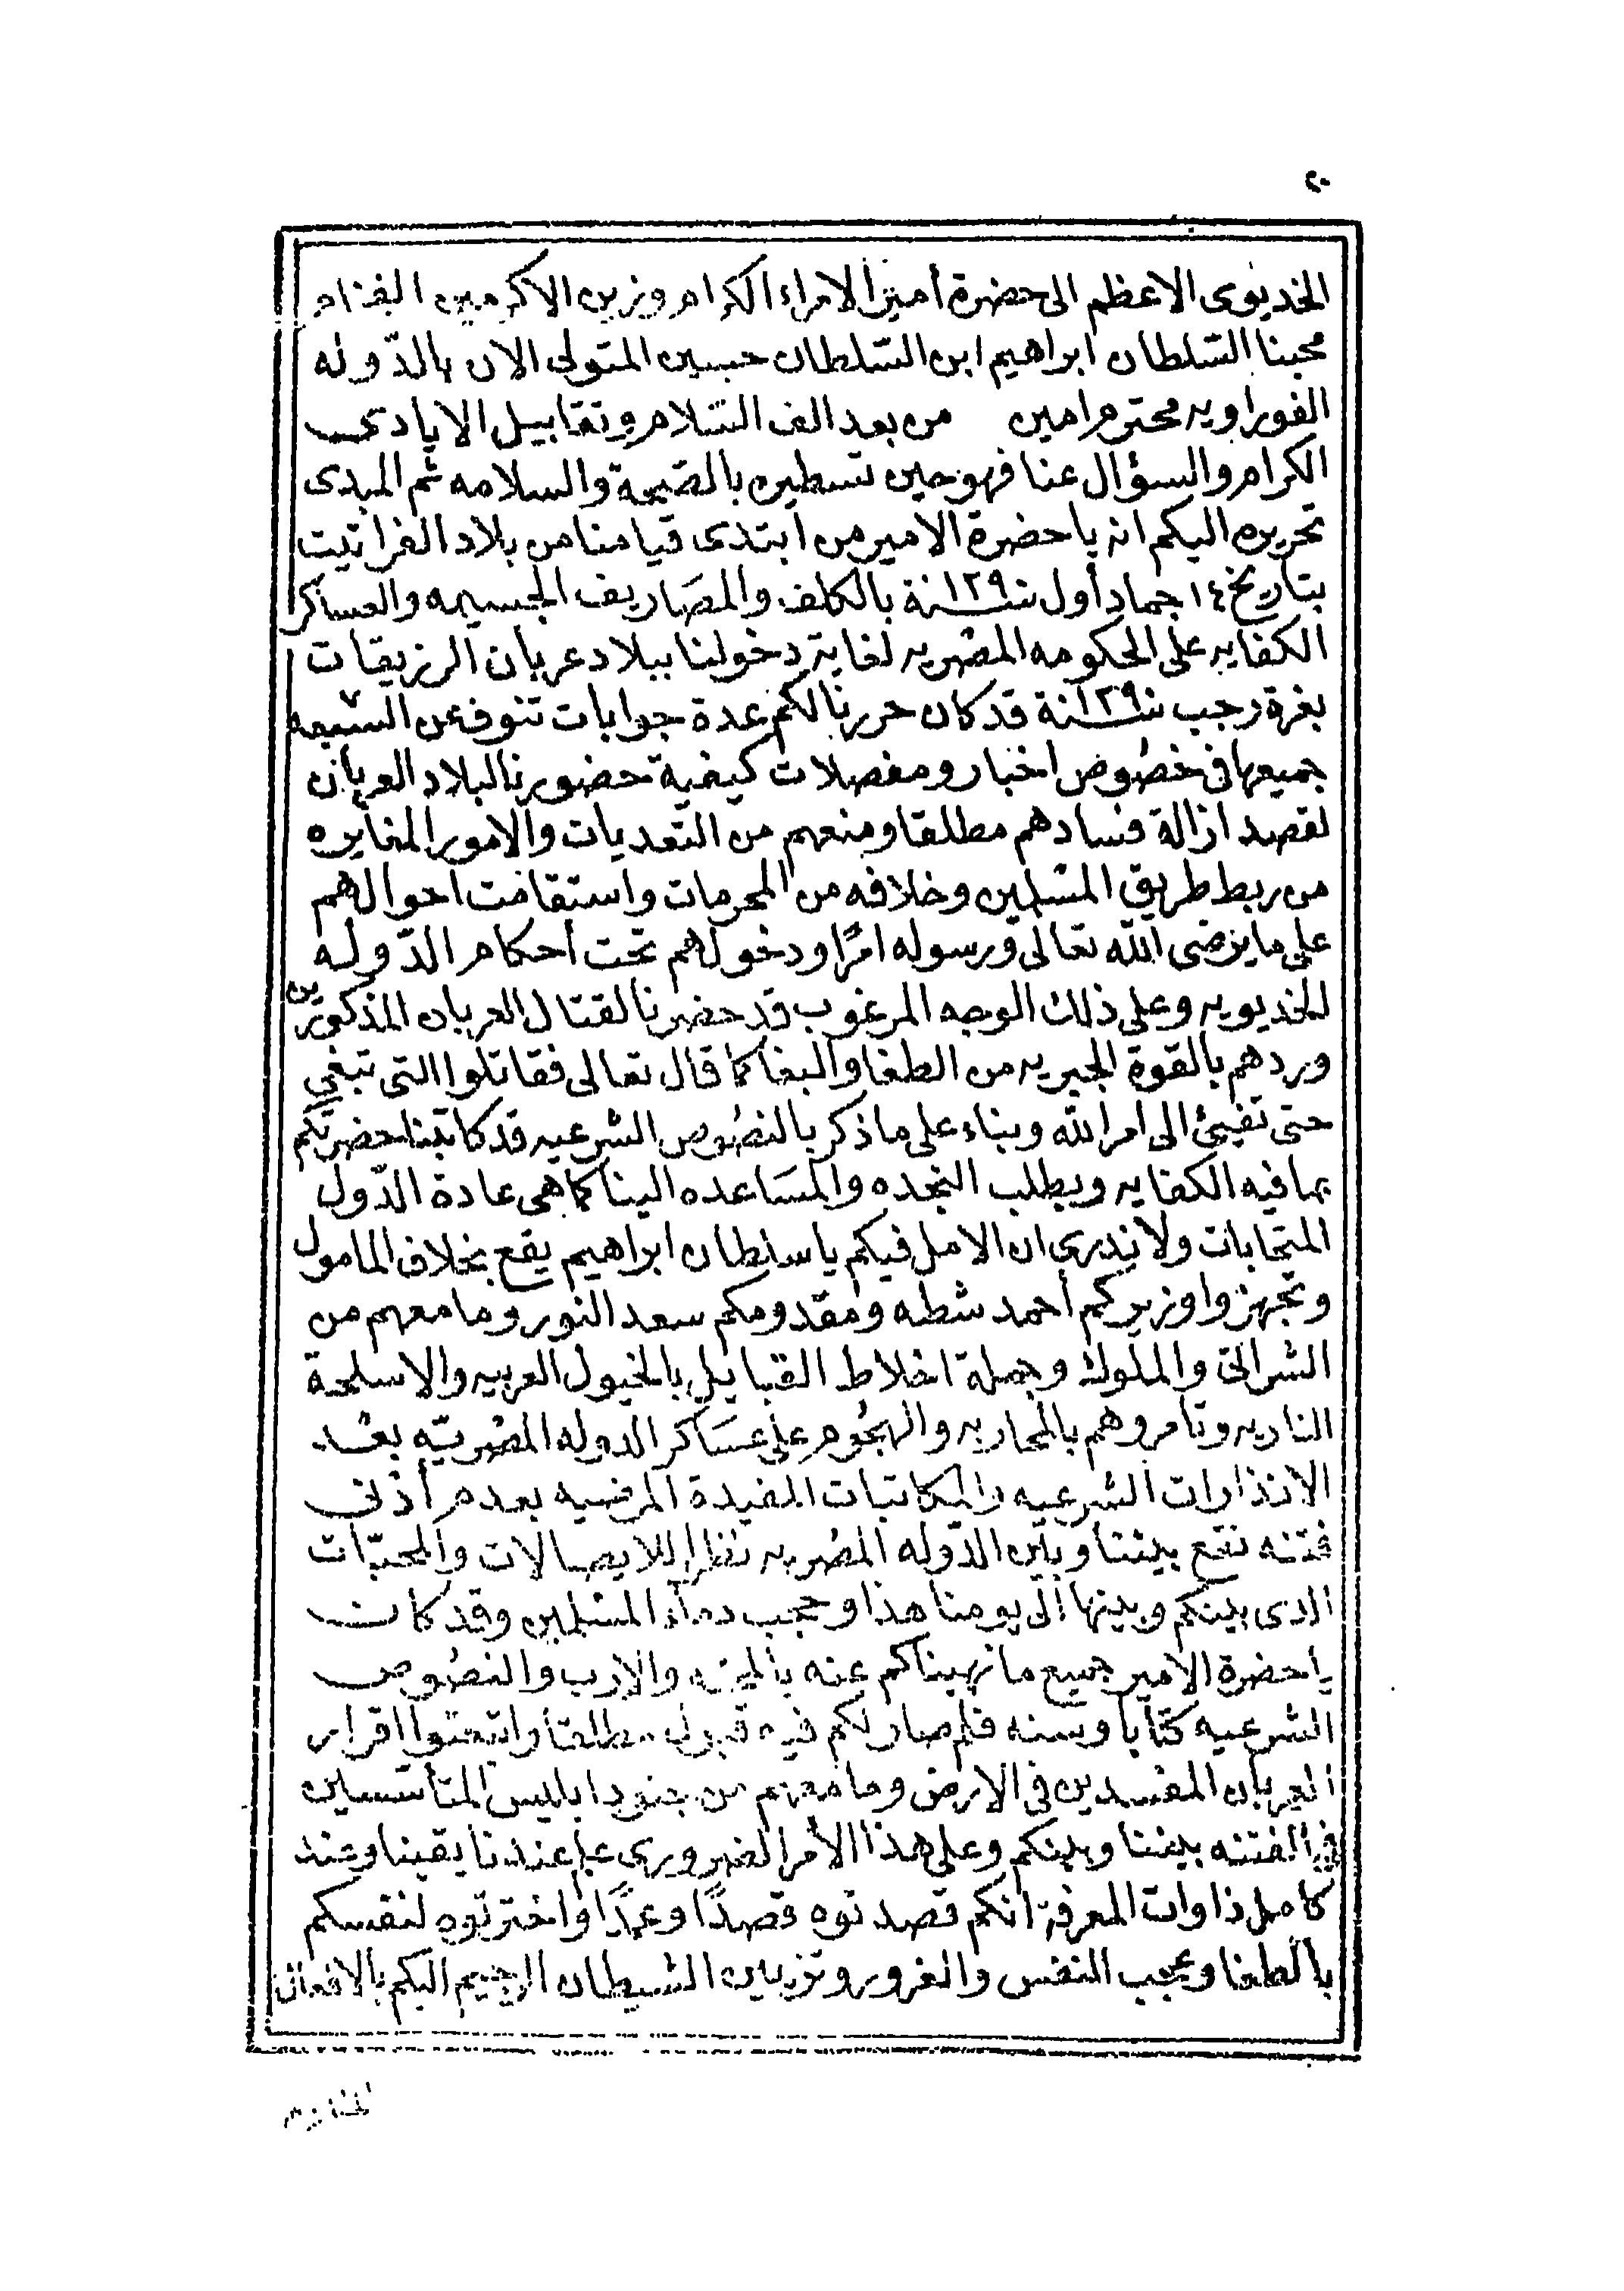 ٢٠
الخديوى الاعظم الى حضرة أمير الامراء الكرام وزين الاكرمين الفخام
محبنا السّلطان ابراهيم ابن السّلطان حسين المتولى الان بالدّوله
الفوراويه محترم امين من بعد الف السّلام وتقابيل الايادى
الكرام والسؤال عنا فهو حين تسطيره بالصّحة والسلامه ثم المبدى
تحريره اليكم انه يا حضرة الامير من ابتدى قيامنا من بلاد الفراتيت
بتاريخ ١٤ جماد أول سنة ١٢٩٠ بالكلف والمصَاريف الجسيمه والعساكر
الكفايه على الحكومه المصْريه لغاية دخولنا ببلاد عربان الرزيقات
بغرة رجب سنة ١٢٩٠ قد كان حررنا لكم عدة جوابات تنوف عن السبعه
جميعها فى خصُوص اخبار ومفصلات كيفية حضورنا لبلاد العربان
لقصد ازالة فسادهم مطلقا ومنعهم من التّعديات والامور المغايره
من ربط طريق المسْلمين وخلافه من المحرمات واستقامت احوالهم
على ما يرضى الله تعالى ورسوله امرًا ودخولهم تحت أحكام الدّوله
الخديويه وعلى ذلك الوجه المرغوب قد حضرنا لقتال العربان المذكورين
وردهم بالقوة الجبريه من الطغا والبغا كما قال تعالى فقاتلوا التى تبغى
حتى تفيئ الى امر الله وبناء على ما ذكر بالنصُوص الشرعيه قد كاتبنا حضرتكم
بما فيه الكفايه وبطلب النجده والمسَاعده الينا كما هى عادة الدّول
المتحابات ولا ندرى ان الامل فيكم يا سلطان ابراهيم يقع بخلاف المامول
وتجهزوا وزيركم أحمد شطه ومقدومكم سعد النور وما معهم من
الشراتى والملوك وجملة اخلاط القبايل بالخيول العربيه والاسلحة
الناريه وتامروهم بالمحاربه والهجُوم على عسَاكر الدوله المصْريّه بعْد
الانذارات الشرعيه والمكاتبات المفيدة المرضيه بعدم أدنى
فتنه تقع بيننا وبين الدّوله المصْريه نظرا للايصالات والمحبّات
الذى بينكم وبينها الى يومنا هذا وحجب دماء المسْلمين وقد كانت
يا حضرة الامير جميع ما نهيناكم عنه والادب والنصُوص
الشرعيه كتابا وسنه فلم صار لكم فيه قبول مطلقا واتبعتوا اقرار
العربان المفسدين فى الارض وما معهم من جنود ابليس المتأسّسين
فى الفتنه بيننا وبينكم وعلى هذا الأمر الضرورى علم عندنا يقينا وعند
كامل ذاوات المعرفة انكم قصدتوه قصدًا وعمدًا واخترتوه لنفسكم
بالطغا وعجب النفس والغرور وتزيين الشيطان الرجيم اليكم بالافعال